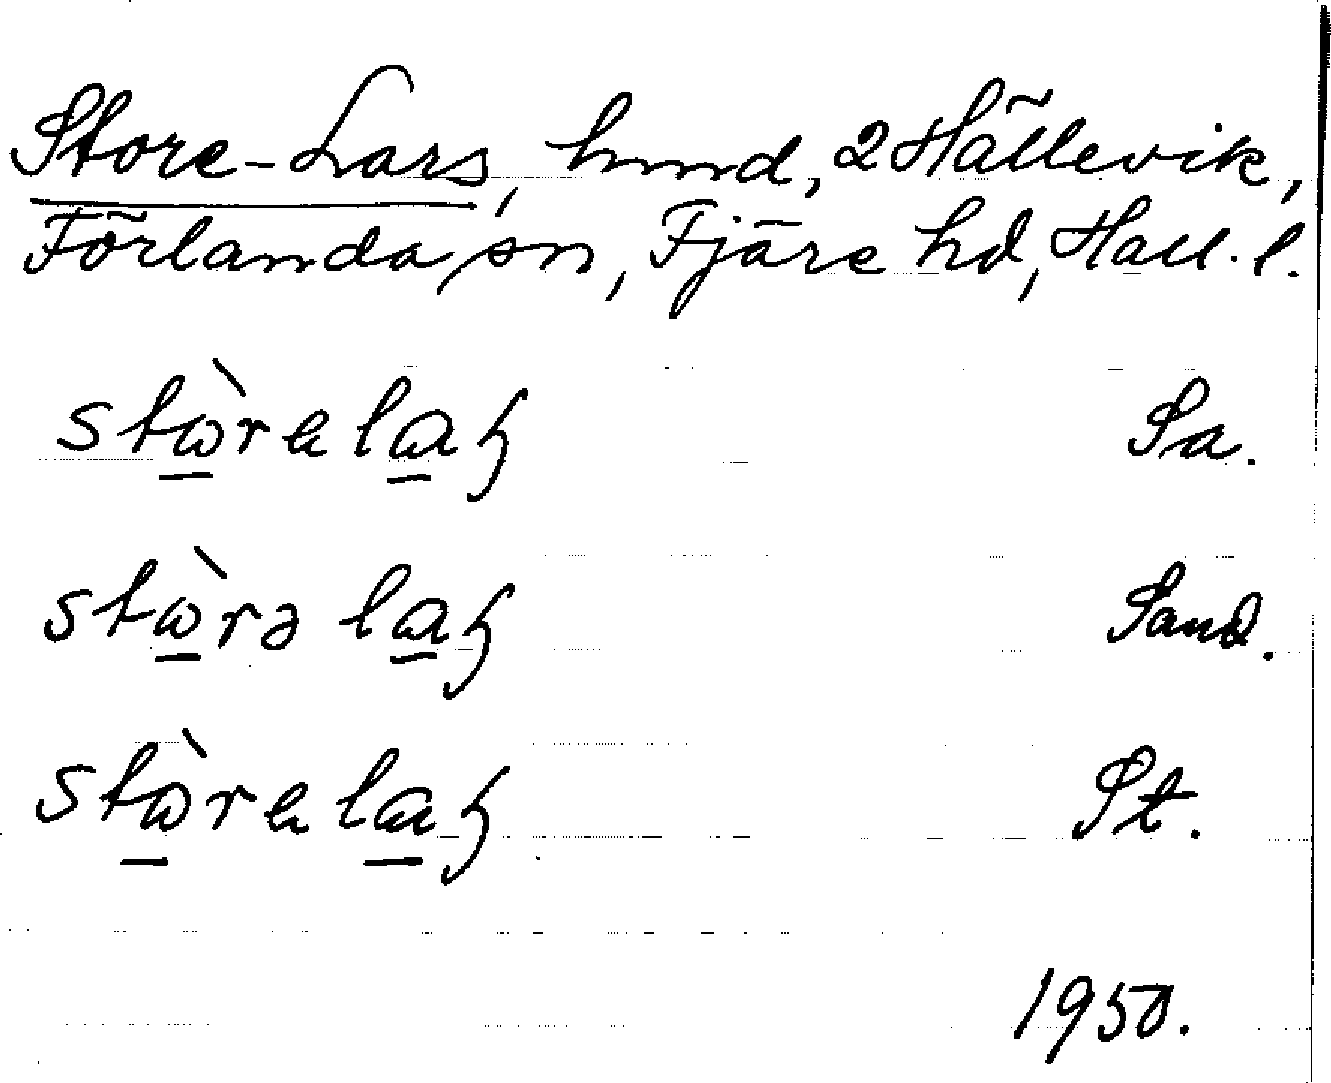 Store-Lars, hmd, 2 Hällevik,
Förlanda sn, Fjäre hd, Hall. l.
stὼ̲relaɧ Sa.
stὼ̲rə laɧ Sand.
stὼ̲relaɧ St.
1950.